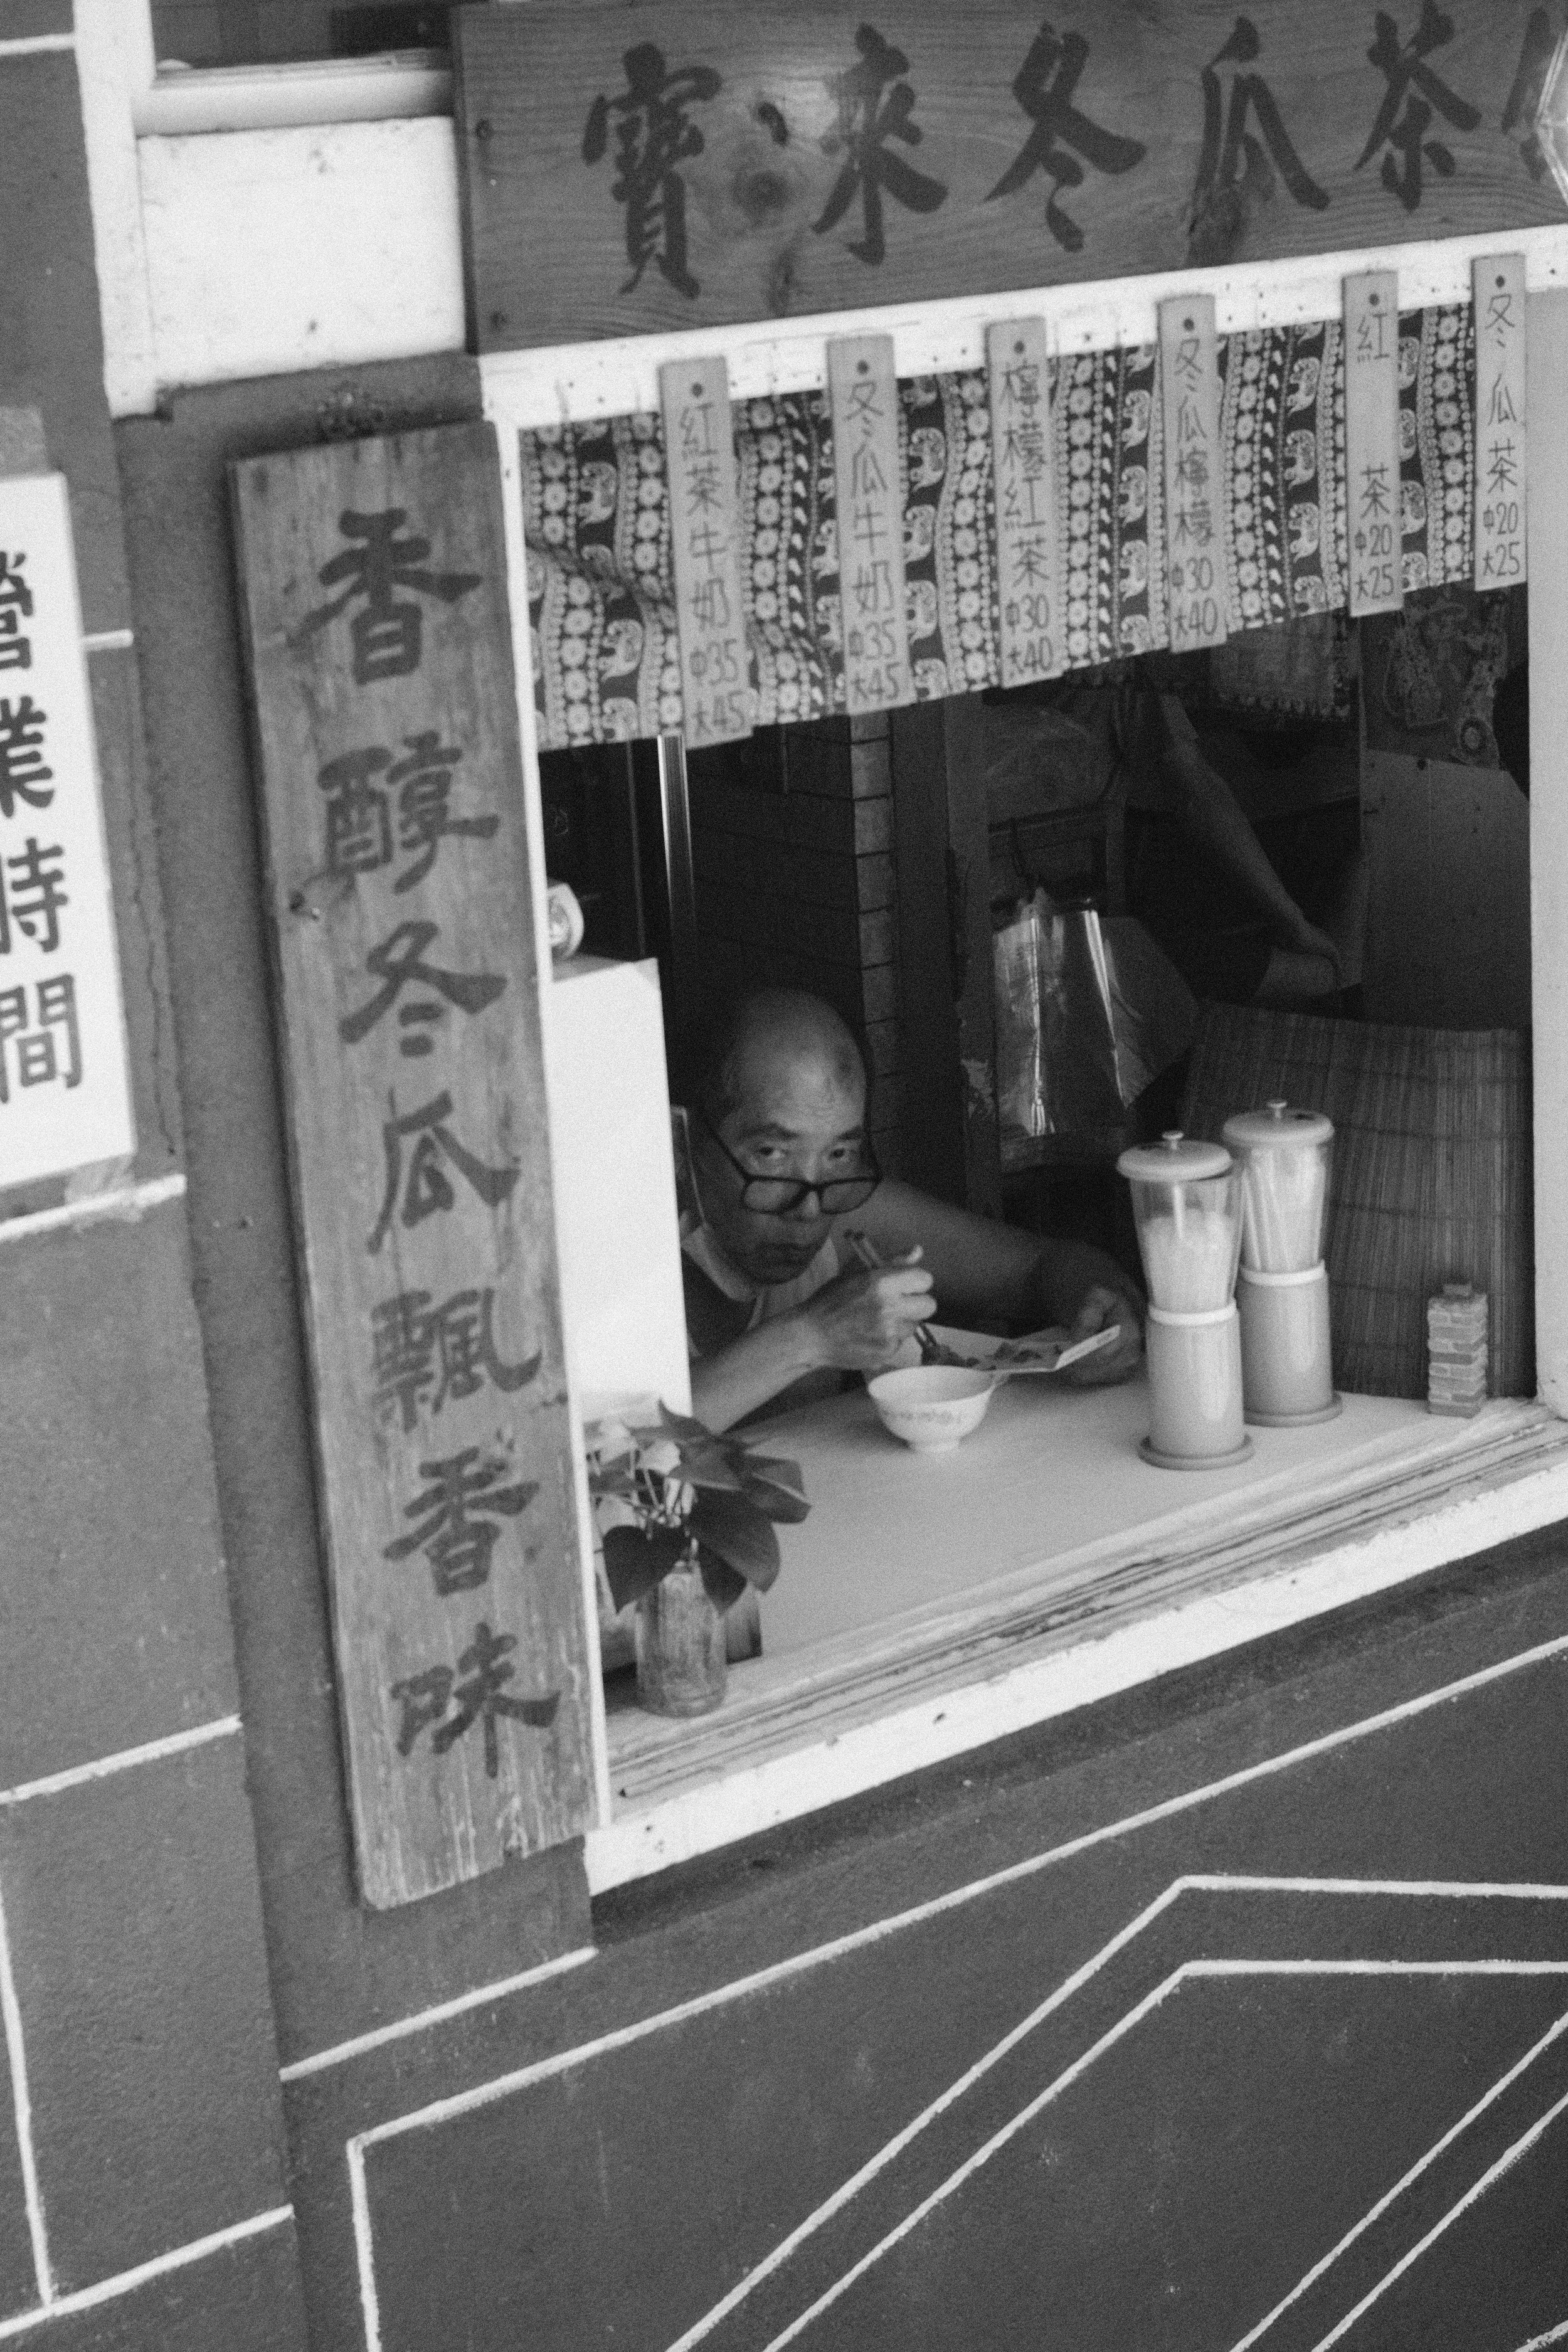 寶來冬瓜茶
冬瓜茶中20大25
紅茶中20大25
冬瓜檸檬中30大40
檸檬紅茶中30大40
冬瓜牛奶中35大45
紅茶牛奶中35大45
香醇冬瓜飄香味
營業時間